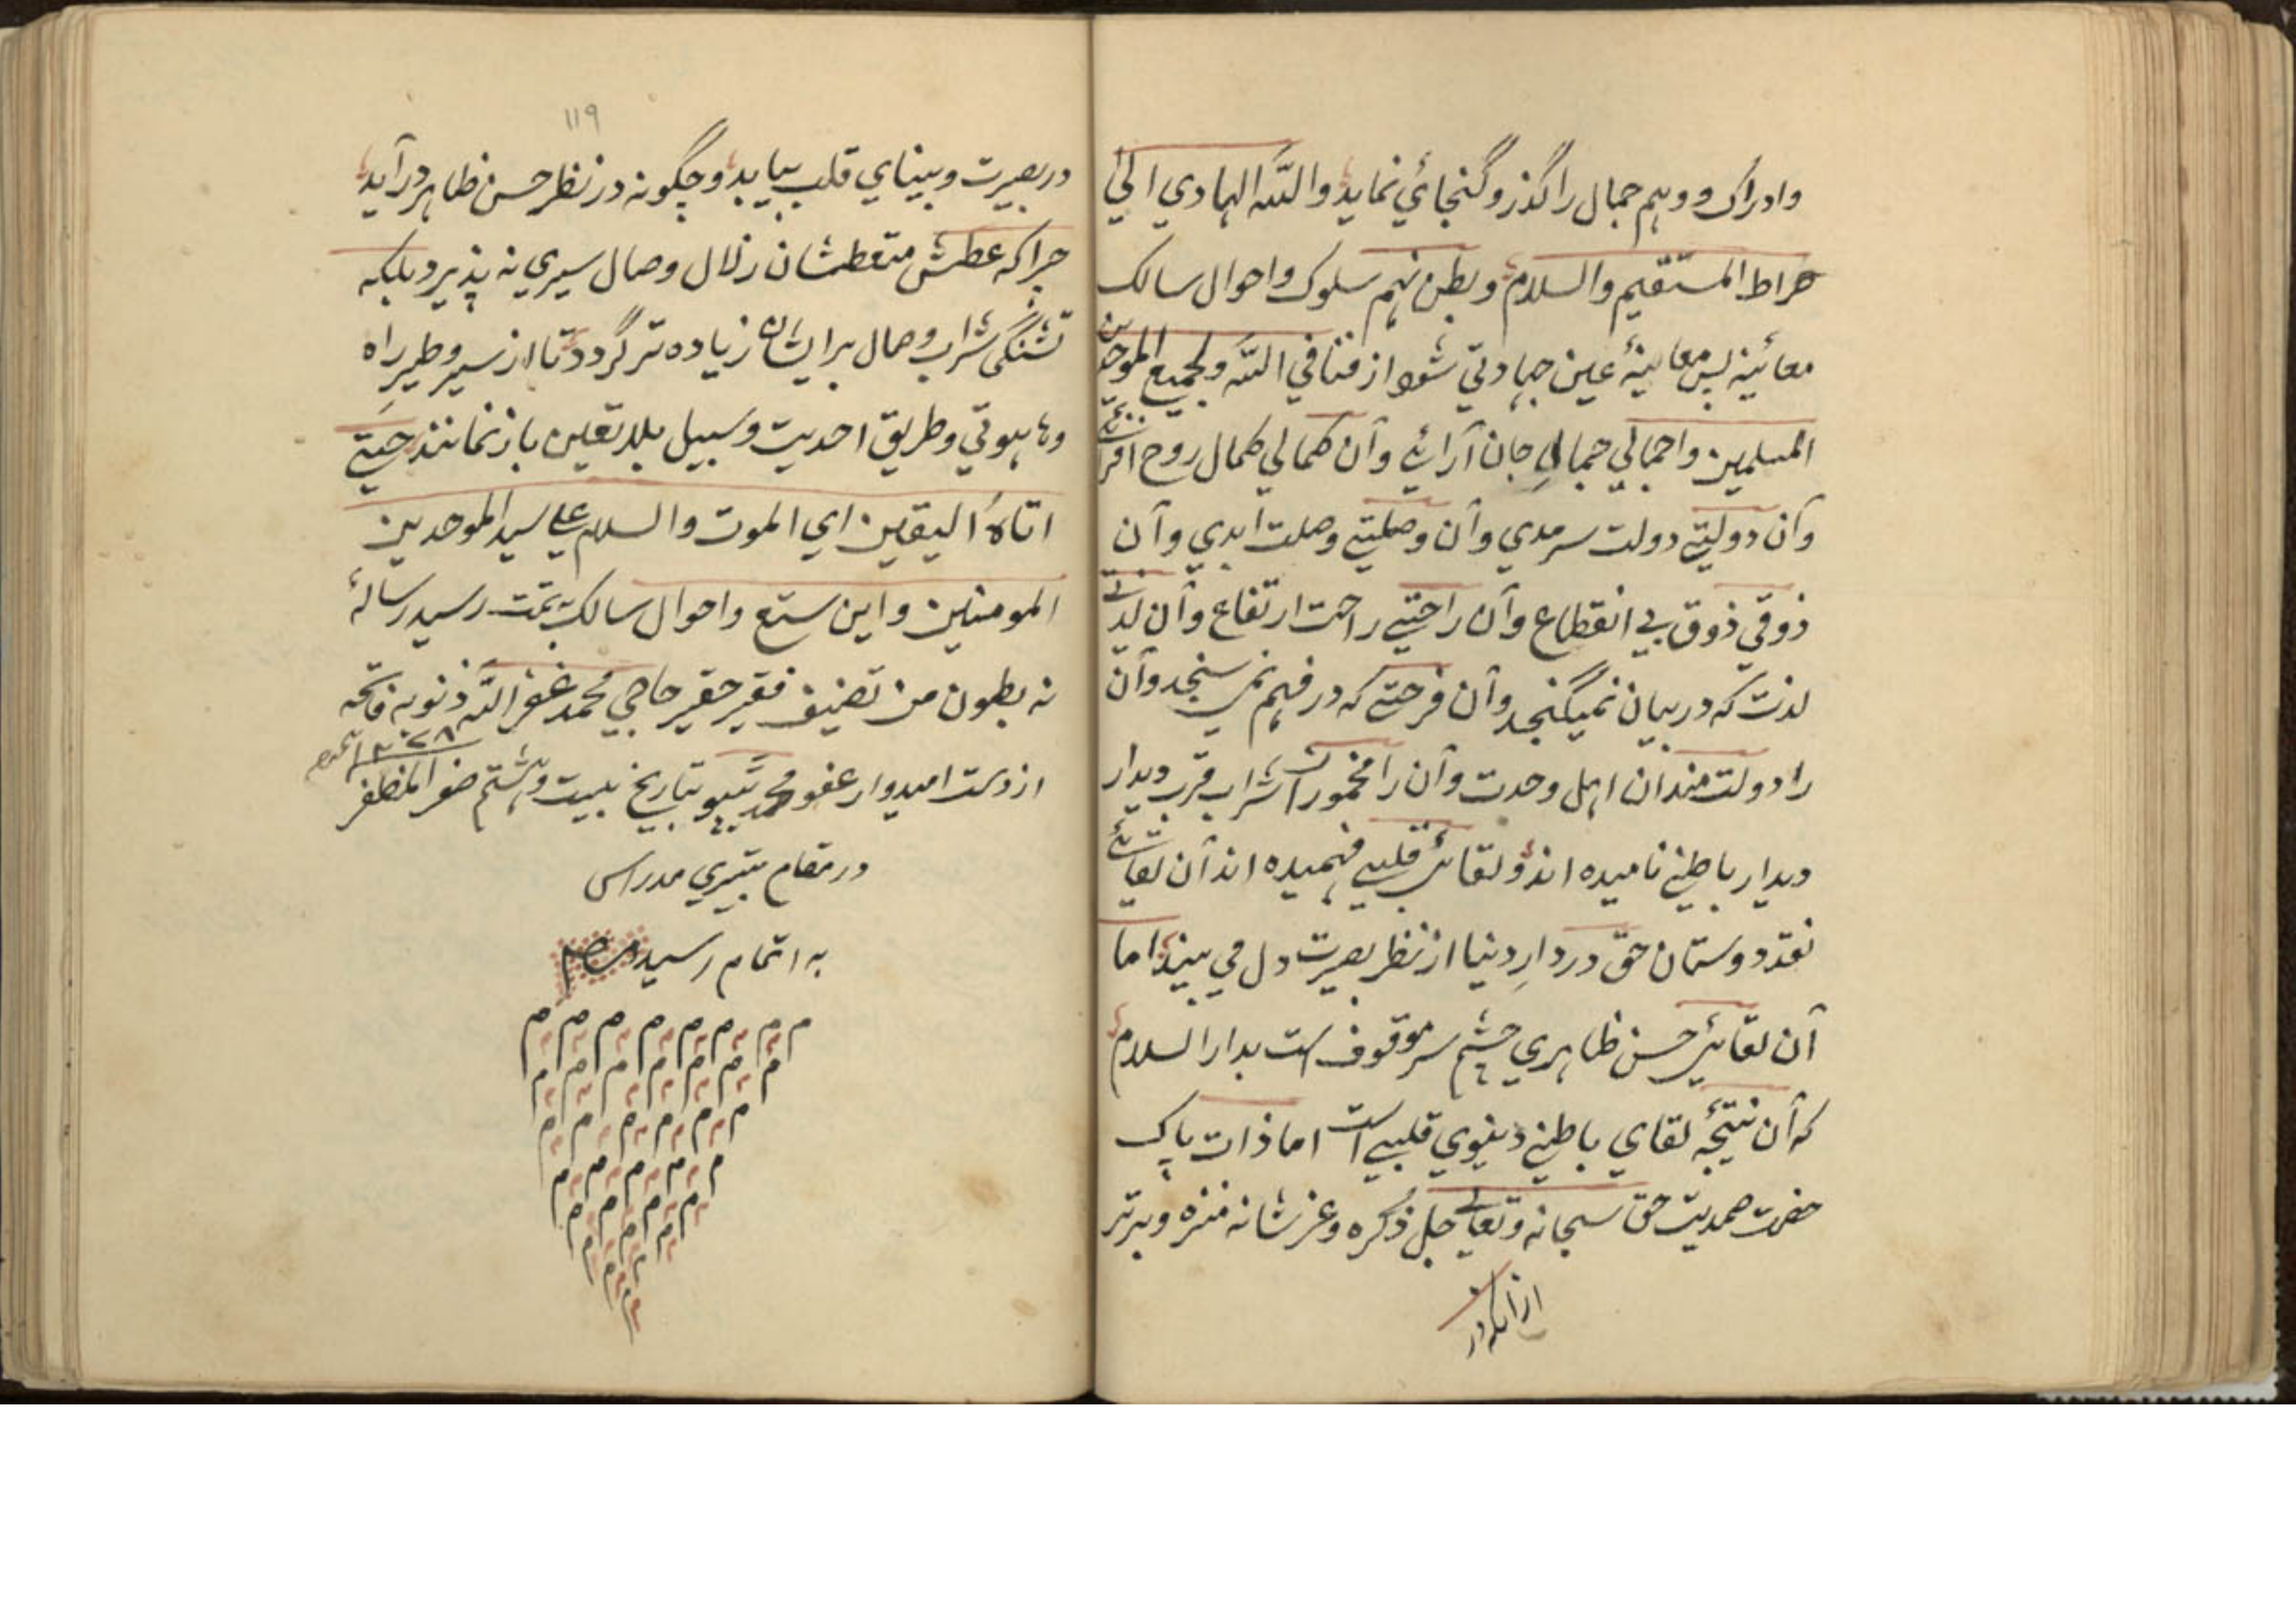 وادراک و وہم جمال را گذر و گنجائي نماید واللّه الهادي الي
صراط المستقیم والسلام وبطن نہم سلوک واحوال سالک
معائینه بس معاینهٔ عین جہادتي شود از فنا في اللّه ولجمیع الموحدین
المسلمین واجمالي جمالي جان آرائے وآن کمالي کمال روح افزائے
وآن دولتے دولت سرمدي وآن وصلتے وصلت ابدي وآن
ذوقي ذوق بے انقطاع وآن راحتے راحت ارتفاع وآن لذتے
لذت که در بیان نمیگنجد وآن فرحتے که در فہم نمے سنجد وآن
را دولتمندان اہل وحدت وآن را مخموران شراب قرب دیدار
دیدار باطنے نامیده اند ولقائے قلبے فہمیده اند آن لقائے
نقد دوستان حق در دارِ دنیا از نظر بصیرت دل مي بیند اما
آن لقائے حسن ظاہري چشم سر موقوف است بدار السلام
که آن نتیجهٔ لقاي باطنے دنیوي قلبے است اما ذات پاک
حضرت صمدیت حق سبحانه وتعالے جل ذکره وعز شانه منزه وبرتر
از آنکه در
۱۱۹
در بصیرت وبیناي قلب بیاید وچگونه در نظر حسن ظاہر در آید
چرا که عطش متعطشان زلال وصال سیري نه پذیرد بلکه
تشنگی شراب وصال بر ایشان زیاده تر گردد تا از سیر وطیر راه
وہاہوتي وطریق احدیت وسبیل بلد تعین باز نمانند حتے
اتاهُ الیقین اي الموت والسلام علے سید الموحدین
المومنین واین ستع واحوال سالک بتمت رسید رسالهٔ
نه بطون من تصنیف فقیر حقیر حاجي محمد غفر اللّه ذنوبه فاتحه
از دست امیدوار عفو محمد تیپو بتاریخ بیست وہشتم صفر المظفر
در مقام متبري مدراس
به اتمام رسید
م م م م م م م م
م م م م م م م
م م م م م م
م م م م م